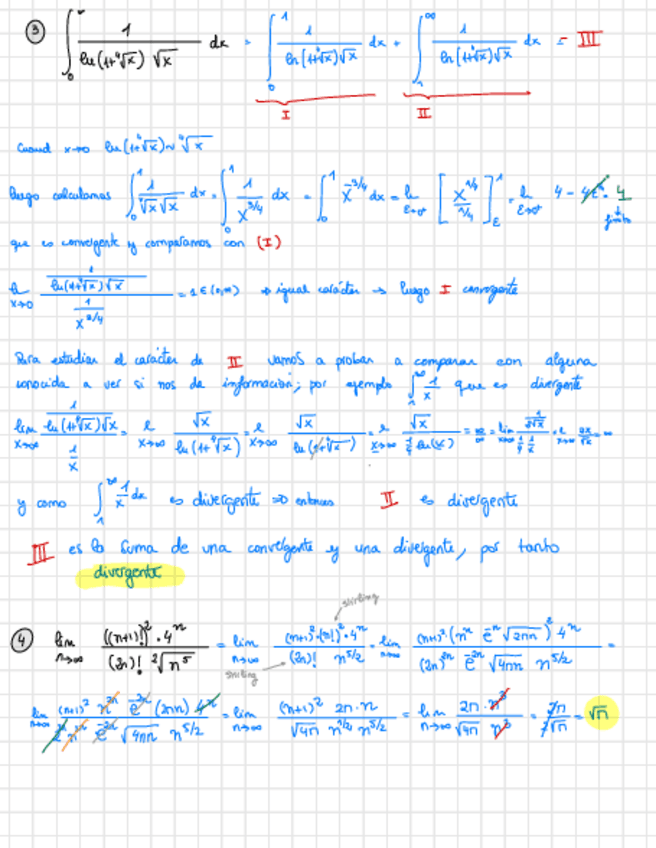 ③ ∫₀^∞ 1/(ln(1+⁴√x) √x) dx = ∫₀¹ 1/(ln(1+⁴√x)√x) dx + ∫₁^∞ 1/(ln(1+⁴√x)√x) dx = III
I II
Cuand x→0 ln(1+⁴√x) ~ ⁴√x
luego calculamos ∫₀¹ 1/(⁴√x √x) dx = ∫₀¹ 1/x^(3/4) dx = ∫₀¹ x^(-3/4) dx = lim ε→0⁺ [x^(1/4)/(1/4)]_ε^1 = lim ε→0⁺ 4 - 4ε^¼ = 4
finito
que es convergente y comparamos con (I)
lim x→0 (1/(ln(1+⁴√x)√x))/(1/x^(3/4)) = 1 ∈ (0,∞) ⇒ igual carácter → luego I convergente
Para estudiar el carácter de II vamos a probar a comparar con alguna
conocida a ver si nos da información; por ejemplo ∫₁^∞ 1/x que es divergente
lim x→∞ (1/(ln(1+⁴√x)√x))/(1/x) = l x→∞ √x/ln(1+⁴√x) = l x→∞ √x/ln(1+⁴√x) = l x→∞ √x/(¼ ln(x)) = ∞/∞ = lim x→∞ (1/(2√x))/(¼ 1/x) = l x→∞ 2x/√x = ∞
y como ∫₁^∞ 1/x dx es divergente ⇒ entonces II es divergente
III es la suma de una convergente y una divergente, por tanto
divergente
stirling
④ lim n→∞ ((n+1)!)² · 4ⁿ/((2n)! ²√n⁵) = lim n→∞ (n+1)²·(n!)²·4ⁿ/((2n)! n^(5/2)) = lim n→∞ (n+1)²·(nⁿ e⁻ⁿ √2πn)² 4ⁿ/((2n)²ⁿ e⁻²ⁿ √4πn n^(5/2)) =
stirling
lim n→∞ (n+1)² n²ⁿ e⁻²ⁿ (2πn) 4ⁿ/(2²ⁿ n²ⁿ e⁻²ⁿ √4πn n^(5/2)) = lim n→∞ (n+1)² 2π·n/(√4π n^(1/2) n^(5/2)) = lim n→∞ 2π·n³/(√4π n³) = 2π/(2√π) = √π